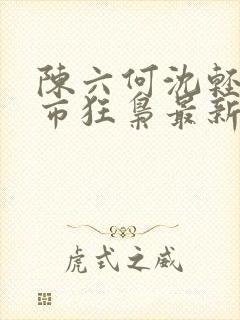 陳六何沈輕
市狂梟最新
虎式之威